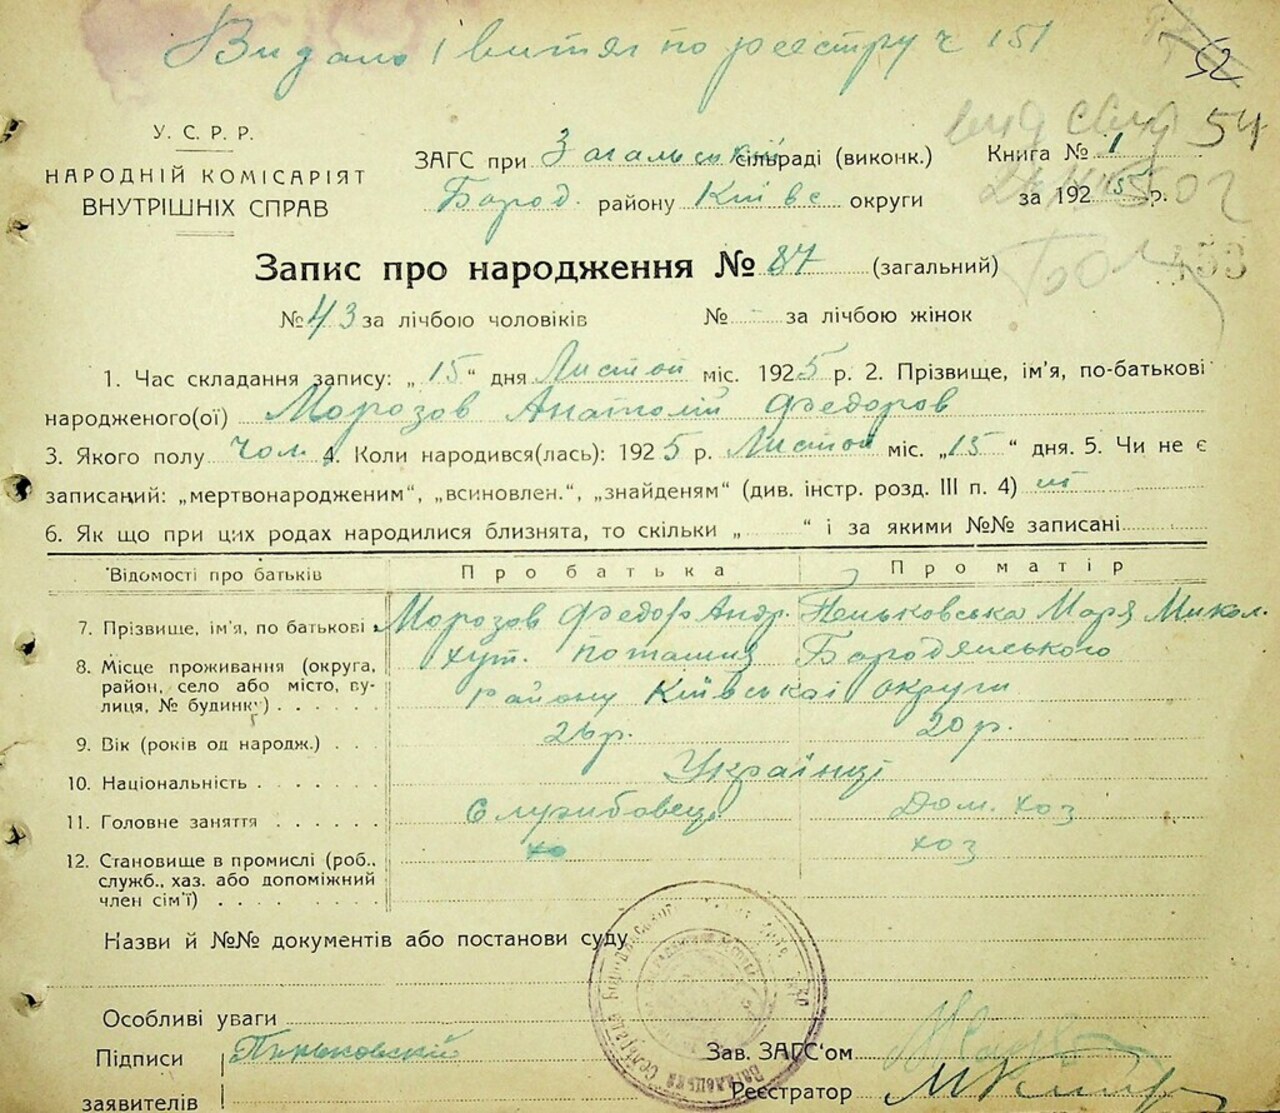 Видано 1 витяг по реєстру ч 151
52
54
У. С. Р. Р.
НАРОДНІЙ КОМІСАРІЯТ
ВНУТРІШНІХ СПРАВ
ЗАГС при Загальській сільраді (виконк.)
Бород. району Київс округи
Книга № 1
за 1925 р.
Запис про народження № 87 (загальний)
№ 43 за лічбою чоловіків № - за лічбою жінок
1. Час складання запису: „ 15 “ дня Листоп міс. 1925 р. 2. Прізвище, ім'я, по-батькові
народженого(ої) Морозов Анатолій Федоров
3. Якого полу чол. 4. Коли народився(лась): 1925 р. Листоп міс. „15 “ дня. 5. Чи не є
записаний: „мертвонародженим“, „всиновлен.“, „знайденям“ (див. інстр. розд. III п. 4)
6. Як що при цих родах народилися близнята, то скільки „ “ і за якими №№ записані
Відомості про батьків Про батька Про матір
7. Прізвище, ім'я, по батькові Морозов Федор Андр. Пеньковська Маря Микол.
8. Місце проживання (округа, район, село або місто, вулиця, № будинку) хут. Поташня Бородянського
району Київської округи
9. Вік (років од народж.) 26 р. 20 р.
10. Національність Українці
11. Головне заняття Службовец. Дом. хоз
12. Становище в промислі (роб., служб., хаз. або допоміжний член сім'ї) хо хоз
Назви й №№ документів або постанови суду
Особливі уваги
Підписи
заявителів
Пеньковский
Зав. ЗАГС'ом
Реєстратор